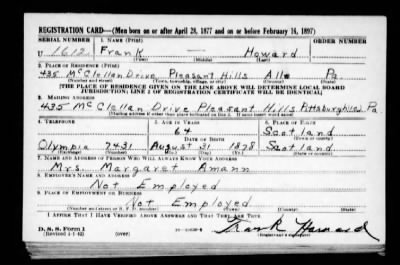 REGISTRATION CARD—(Men born on or after April 28, 1877 and on or before February 16, 1897)
SERIAL NUMBER 1. NAME (Print) ORDER NUMBER
U 1612 Frank Howard
(First) (Middle) (Last)
2. PLACE OF RESIDENCE (Print)
435 McClellan Drive Pleasant Hills Alle Pa
(Number and street) (Town, township, village, or city) (County) (State)
[THE PLACE OF RESIDENCE GIVEN ON THE LINE ABOVE WILL DETERMINE LOCAL BOARD
JURISDICTION; LINE 2 OF REGISTRATION CERTIFICATE WILL BE IDENTICAL]
3. MAILING ADDRESS
435 McClellan Drive Pleasant Hills Pittsburgh Pa
[Mailing address if other than place indicated on line 2. If same insert word same]
4. TELEPHONE 5. AGE IN YEARS 6. PLACE OF BIRTH
64 Scotland
DATE OF BIRTH (Town or county)
Olympia 7431 August 31 1878 Scotland
(Exchange) (Number) (Mo.) (Day) (Yr.) (State or country)
7. NAME AND ADDRESS OF PERSON WHO WILL ALWAYS KNOW YOUR ADDRESS
Mrs. Margaret Amann
8. EMPLOYER'S NAME AND ADDRESS
Not Employed
9. PLACE OF EMPLOYMENT OR BUSINESS
Not Employed
(Number and street or R. F. D. number) (Town) (County) (State)
I AFFIRM THAT I HAVE VERIFIED ABOVE ANSWERS AND THAT THEY ARE TRUE.
D. S. S. Form 1
(Revised 4-1-42) (over) Frank Howard
(Registrant's signature)